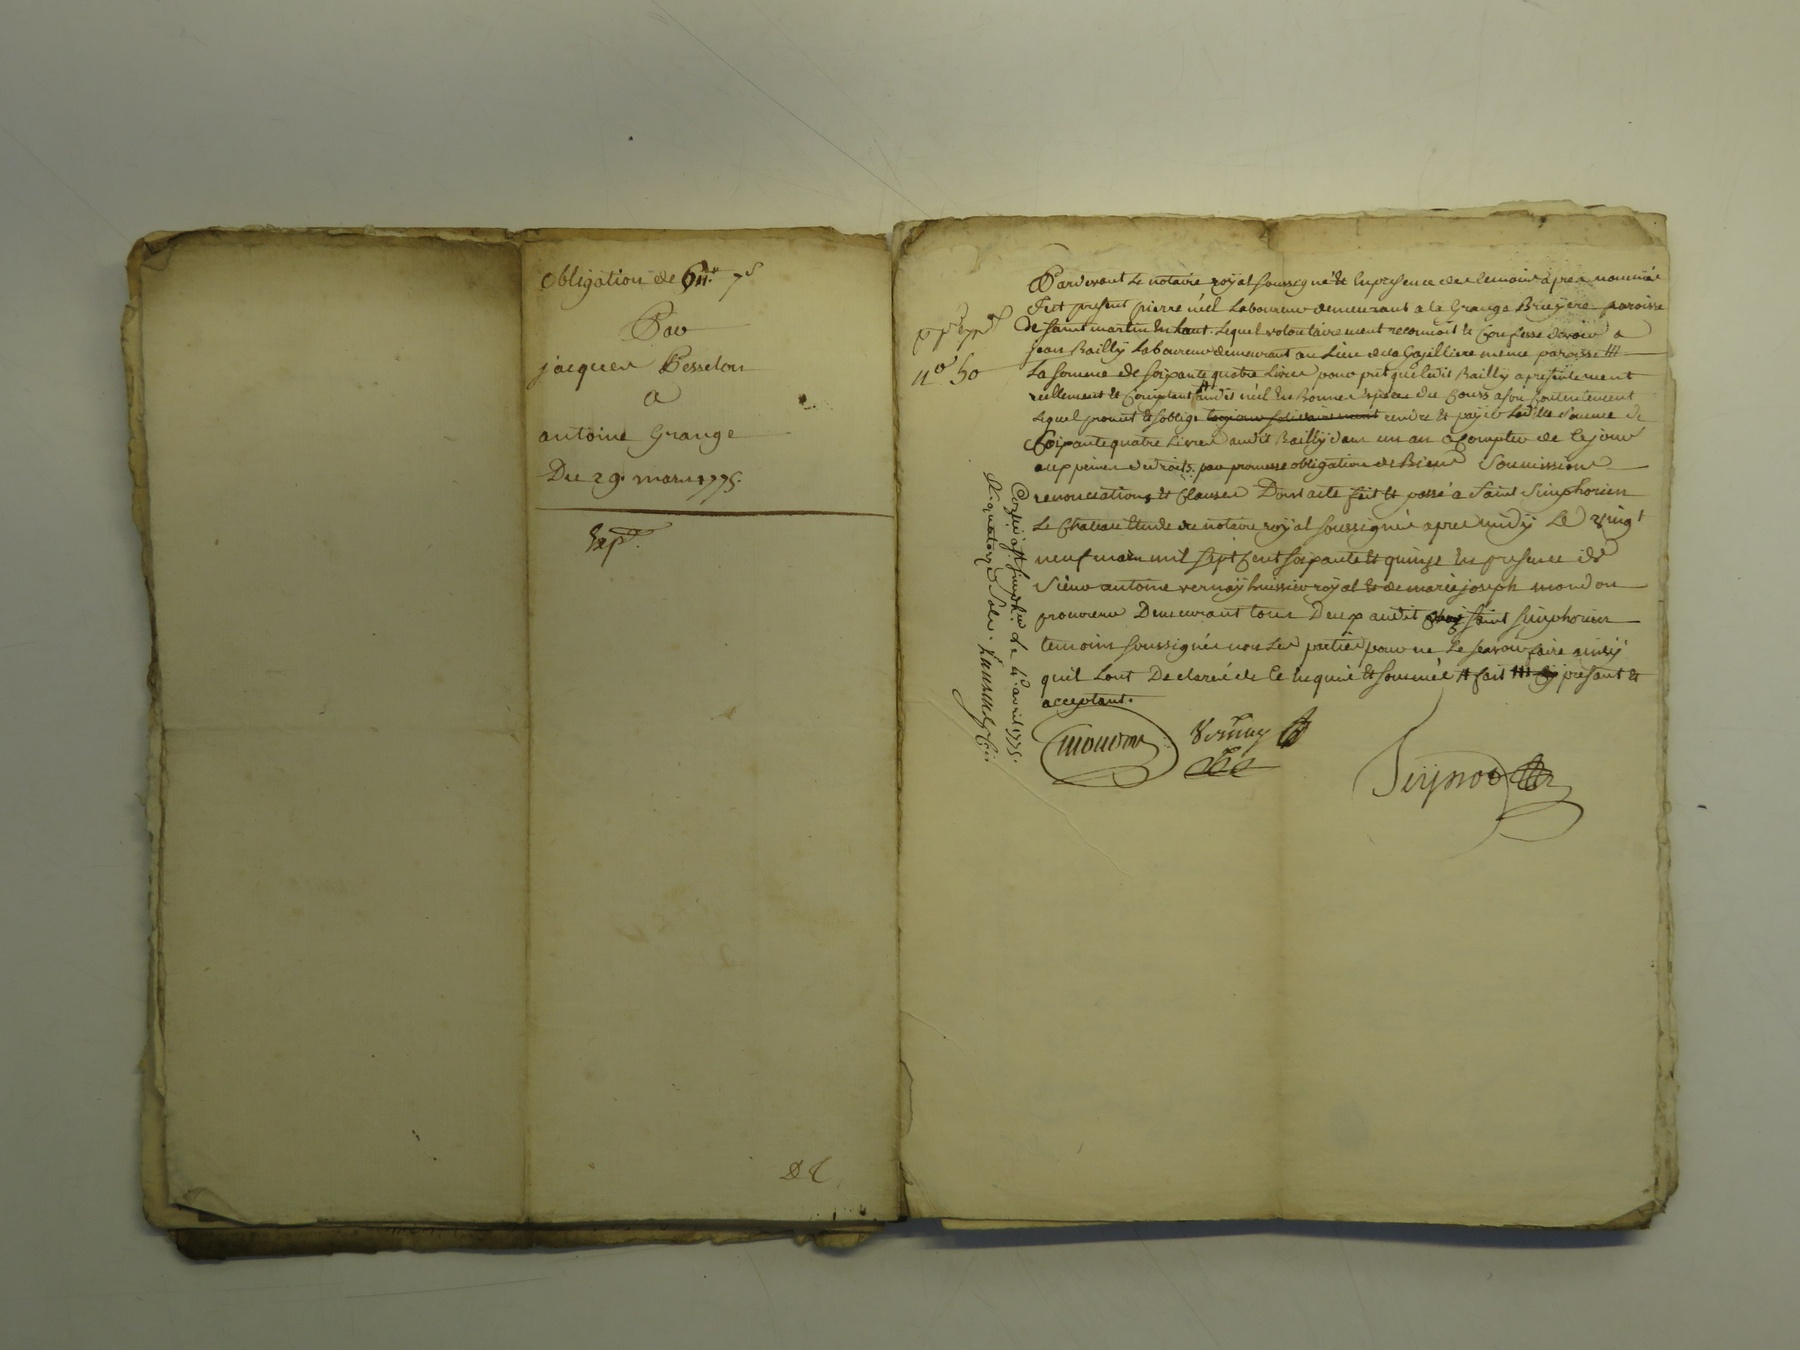 obligation de 61# 7s
Par
jacques Besseton
a
antoine Grange
Du 29. mars 1775.
Exp.
Pardevant Le notaire royal soussigné & En presence des temoins apres nommés
Fut present pierre néel Laboureur demeurant a la Grange Bruyere paroisse
De saint martin En haut. Lequel volontairement reconnoit & Confesse devoir a
jean Bailly Laboureur demeurant au Lieu de la Gajilliere meme paroisse
n° 50
La somme de soixante quatre Livres pour prêt que ledit Bailly a presentement
reellement & Comptant audit néel En Bonnes Especes du Cours a son Contentement
Lequel promet & s'oblige rendre & payer Ladite somme de
soixante quatre Livres audit Bailly dans un an a Compter de Ce jour
aux peines de droits. par promesse obligation de Biens soumissions
renonciations & Clauses Dont acte fait & passé a saint simphorien
Le Chateau Etude du notaire royal soussigné apres midy Le vingt
neuf mars mil sept Cent soixante & quinze En presence de
sieur antoine vernay huissier royal & de marie joseph mondon
procureur Demeurant tous Deux audit saint simphorien
temoins soussignés non Les parties pour ne Le scavoir faire ainsy
quil Lont Declaré de Ce Enquis & sommés fait present &
acceptant.
Mondon
Vernay
Controllé a st simph.en Le 4. avril 1775.
R. quatorze sols.